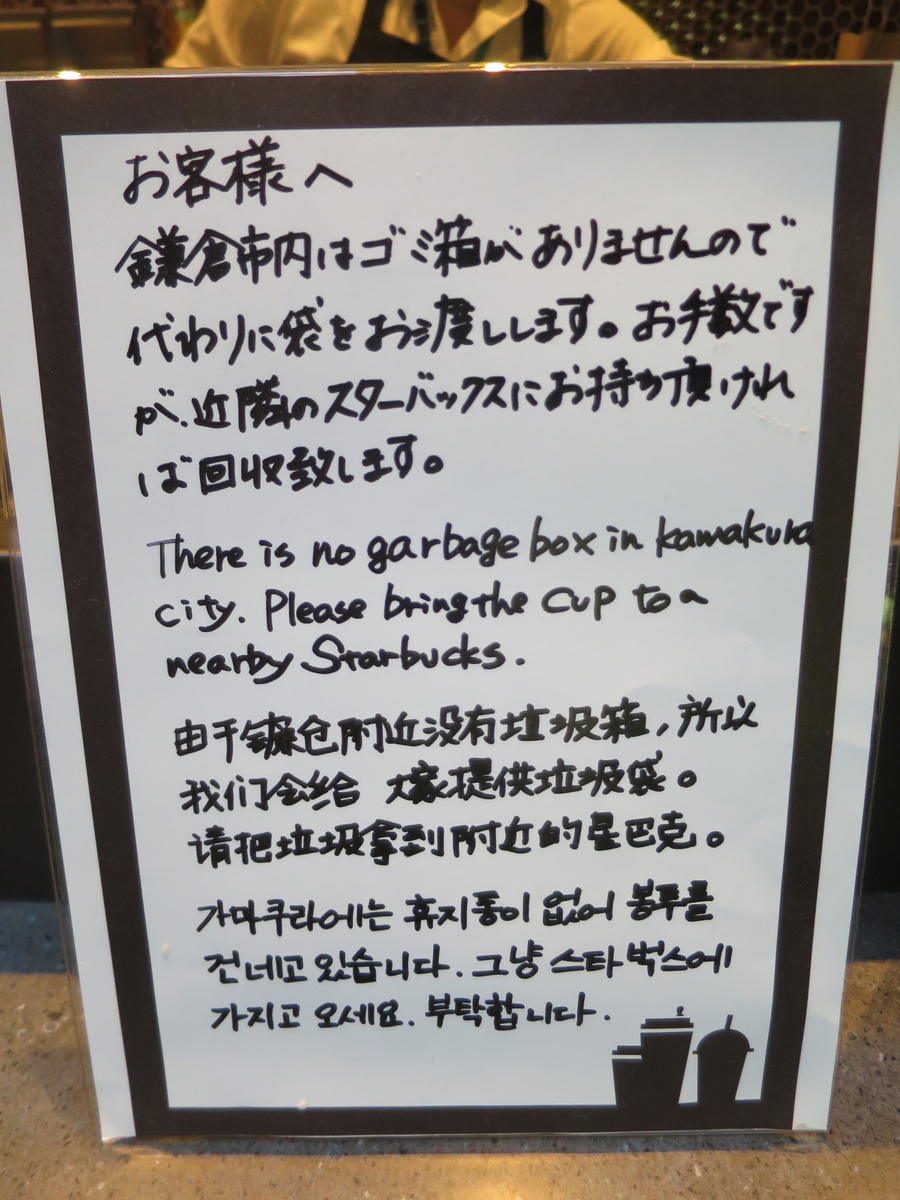 お客様へ
鎌倉市内はゴミ箱がありませんので
代わりに袋をお渡しします。お手数です
が、近隣のスターバックスにお持ち頂けれ
ば回収致します。
There is no garbage box in kamakura
city. Please bring the cup to a
nearby Starbucks.
由于镰仓附近没有垃圾箱,所以
我们会给 大家提供垃圾袋。
请把垃圾拿到附近的星巴克。
가마쿠라에는 휴지통이 없어 봉투를
건네고 있습니다. 그냥 스타벅스에
가지고 오세요. 부탁합니다.